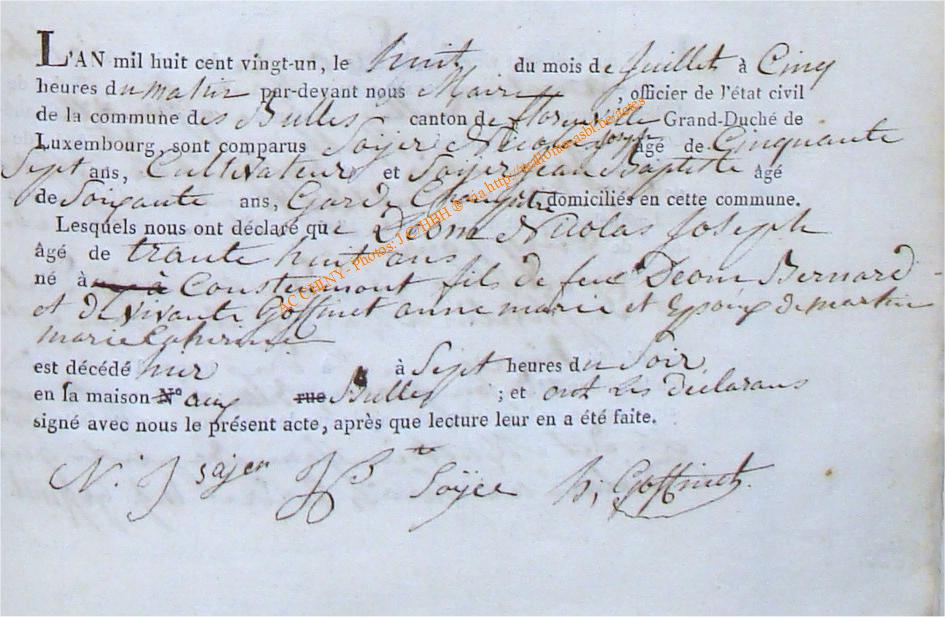 L'AN mil huit cent vingt-un, le huit du mois de Juillet à Cinq
heures du matin par-devant nous Maire, officier de l'état civil
de la commune des Bulles canton de florenville Grand-Duché de
Luxembourg, sont comparus Soyer Nicolas Joseph âgé de Cinquante
Sept ans, Cultivateur et Soyer Jean Baptiste âgé
de Soixante ans, Garde Champêtre domiciliés en cette commune.
Lesquels nous ont déclaré que Deom Nicolas Joseph
âgé de trante huit ans
né à Constermont fils de feu Deom Bernard
et de vivante Goffinet anne marie et Epoux de martin
marie Catherine
est décédé hier à Sept heures du Soir
en sa maison N.º aux rue Bulles ; et ont les déclarans
signé avec nous le présent acte, après que lecture leur en a été faite.
N. J Soyer J B Soyee h; Goffinet
AC CHINY - Photos: J-C HBH © via